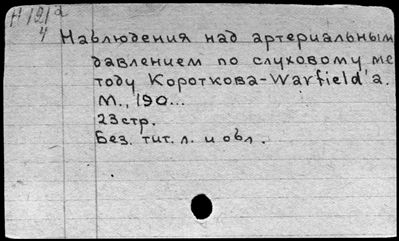 Н 121а
4
Наблюдения над артериальным
давлением по слуховому ме
тоду Короткова-Warfield'a.
М., 190...
23стр.
Без. тит. л. и обл.